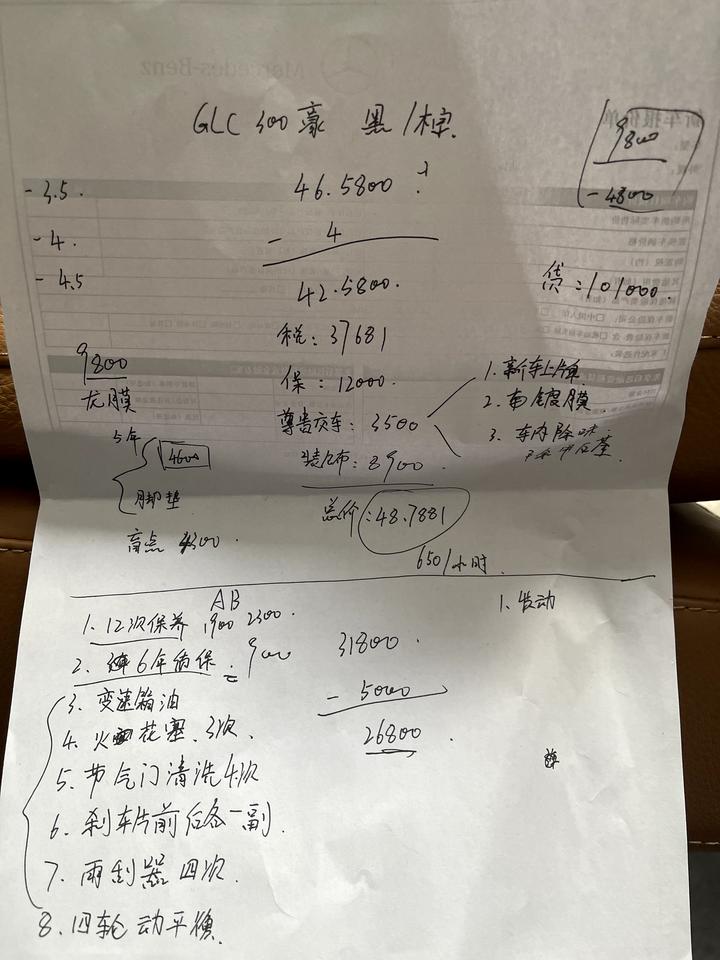 GLC 300 豪 黑/棕.
9800
-4800
-3.5.
-4.
-4.5
46.5800
- 4
42.5800.
贷:101000.
税: 37681
保: 12000.
尊贵交车: 3500
1. 新车上牌
2. 镀膜
3. 车内除味
装饰: 8900
总价: 48.7881
650/小时
9800
龙膜
5年
4600
脚垫
盲点
AB
1. 12次保养 1900 2300.
2. 6年质保: 900
3. 变速箱油
4. 火花塞. 3次.
5. 节气门清洗4次
6. 刹车片前后各一副.
7. 雨刮器 四次.
8. 四轮动平衡.
31800.
- 5000
26800.
1. 发动